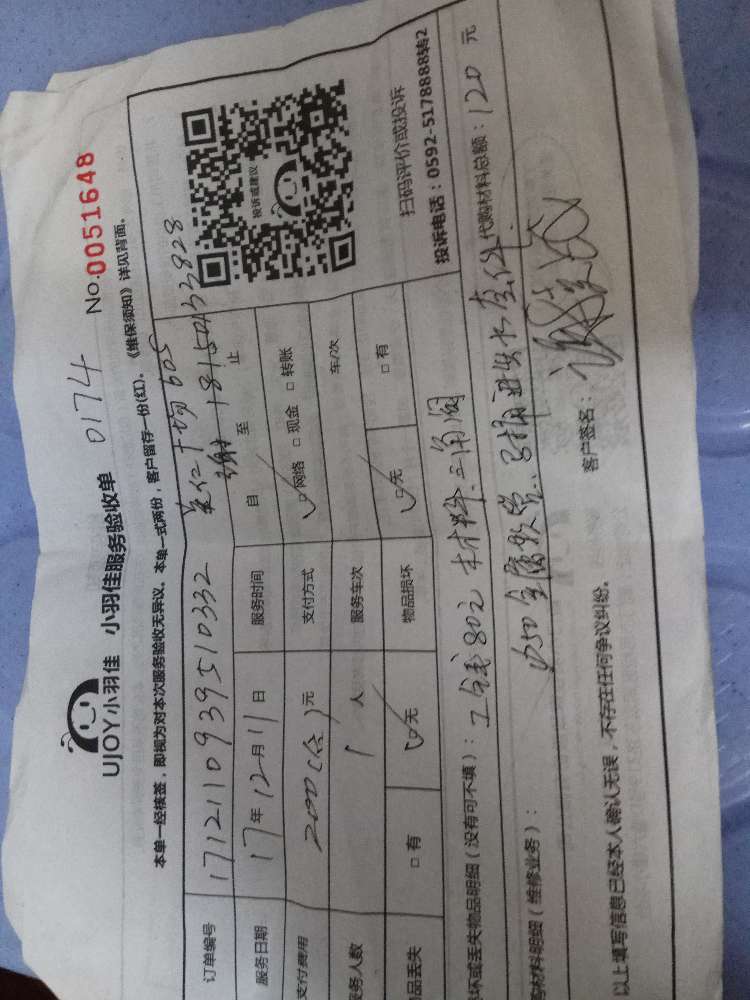 UJOY小羽佳 小羽佳服务验收单 0174 No.0051648
本单一经核签，即视为对本次服务验收无异议。本单一式两份，客户留存一份(红)。《维保须知》详见背面。
订单编号 1712110939510332 605 18150453828
服务日期 17年12月11日 服务时间 自 至 止
支付费用 200(含)元 支付方式 ☑网络 □现金 □转账
务人数 1人 服务车次 车/次
品丢失 □有 ☑无 物品损坏 ☑无 □有
投诉或建议
扫码评价或投诉
投诉电话：0592-5178888转2
坏或丢失物品明细（没有可不填）：工钱80元 材料：三角阀
购材料明细（维修业务）： 金属软管 代购材料总额：120元
以上填写信息已经本人确认无误，不存在任何争议纠纷。 客户签名：